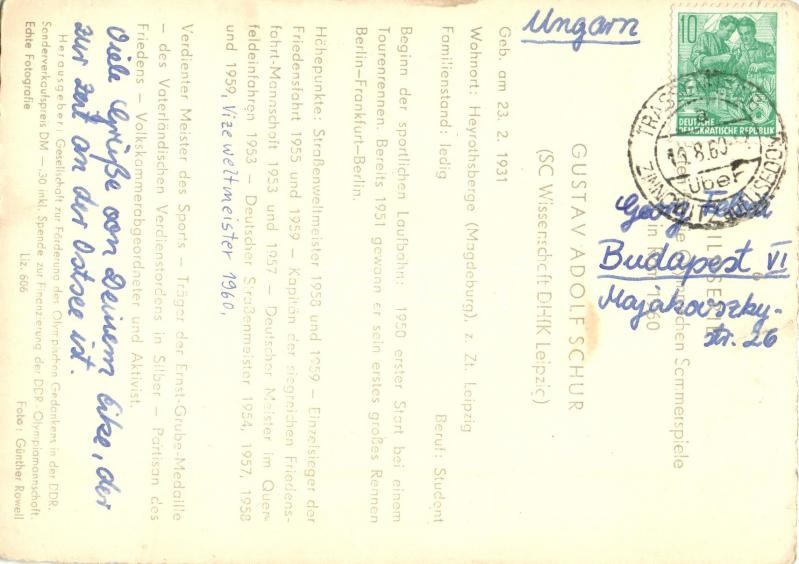 Ungarn
10
DEUTSCHE
DEMOKRATISCHE REPUBLIK
über
Georg
Budapest VI
Majakovszky-
str. 26
Sommerspiele
GUSTAV ADOLF SCHUR
(SC Wissenschaft DHfK Leipzig)
Geb. am 23. 2. 1931
Wohnort: Heyrothsberge (Magdeburg), z. Zt. Leipzig
Familienstand: ledig Beruf: Student
Beginn der sportlichen Laufbahn: 1950 erster Start bei einem
Tourenrennen. Bereits 1951 gewann er sein erstes großes Rennen
Berlin—Frankfurt—Berlin.
Höhepunkte: Straßenweltmeister 1958 und 1959 — Einzelsieger der
Friedensfahrt 1955 und 1959 — Kapitän der siegreichen Friedens-
fahrt-Mannschaft 1953 und 1957 — Deutscher Meister im Quer-
feldeinfahren 1953 — Deutscher Straßenmeister 1954, 1957, 1958
und 1959, Vizeweltmeister 1960,
Verdienter Meister des Sports — Träger der Ernst-Grube-Medaille
— des Vaterländischen Verdienstordens in Silber — Partisan des
Friedens — Volkskammerabgeordneter und Aktivist.
Viele Grüße von Deinem Eike, der
zur Zeit an der Ostsee ist.
Herausgeber: Gesellschaft zur Förderung des Olympischen Gedankens in der DDR.
Sonderverkaufspreis DM —.30 inkl. Spende zur Finanzierung der DDR Olympiamannschaft.
Echte Fotografie Liz. 606 Foto: Günther Rowell